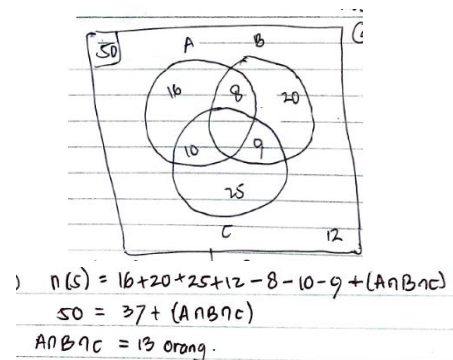 50
A B
16 8 20
10 9
25
C 12
) n(s) = 16+20+25+12-8-10-9+(A∩B∩C)
50 = 37+ (A∩B∩C)
A∩B∩C = 13 orang.